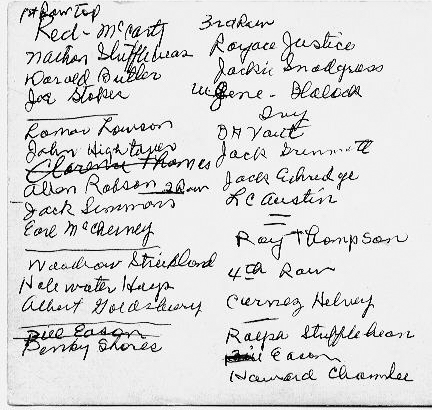 1st Row Top
Red - McCarty
Nathan Stufflebeas
Darald Butler
Joe Stoker
Lamar Lawson
John Hightower
Clarence Thomas
Allen Robson 2 Row
Jack Simmons
Earl McCherney
Woodrow Strickland
Helewater Heys
Albert Goldsberry
Bill Eason
Benky Shores
3rd Row
Royace Justice
Jackie Snodgrass
Gene - Halock
Ivy
BH Vault
Jack Grimmett
Jack Eskredge
LC Austin
Roy Thompson
4th Row
Curnez Helney
Ralph Stufflebean
Bill Eason
Howard Chamlee